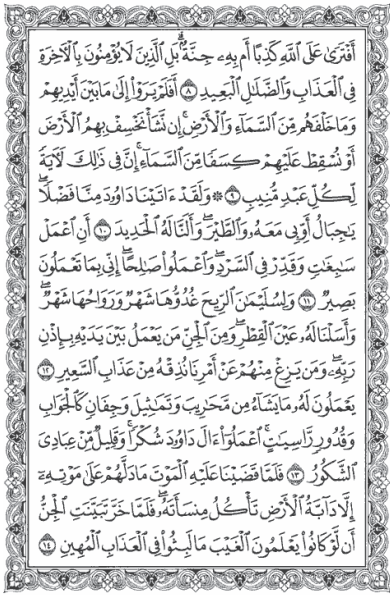 أَفْتَرَىٰ عَلَى ٱللَّهِ كَذِبًا أَم بِهِۦ جِنَّةُۢ ۗ بَلِ ٱلَّذِينَ لَا يُؤْمِنُونَ بِٱلْأَخِرَةِ
فِى ٱلْعَذَابِ وَٱلضَّلَٰلِ ٱلْبَعِيدِ ٨ أَفَلَمْ يَرَوْا۟ إِلَىٰ مَا بَيْنَ أَيْدِيهِمْ
وَمَا خَلْفَهُم مِّنَ ٱلسَّمَآءِ وَٱلْأَرْضِ ۚ إِن نَّشَأْ نَخْسِفْ بِهِمُ ٱلْأَرْضَ
أَوْ نُسْقِطْ عَلَيْهِمْ كِسَفًا مِّنَ ٱلسَّمَآءِ ۚ إِنَّ فِى ذَٰلِكَ لَءَايَةً
لِّكُلِّ عَبْدٍ مُّنِيبٍ ٩ ۞ وَلَقَدْ ءَاتَيْنَا دَاوُۥدَ مِنَّا فَضْلًا ۖ
يَٰجِبَالُ أَوِّبِى مَعَهُۥ وَٱلطَّيْرَ ۖ وَأَلَنَّا لَهُ ٱلْحَدِيدَ ١٠ أَنِ ٱعْمَلْ
سَٰبِغَٰتٍ وَقَدِّرْ فِى ٱلسَّرْدِ ۖ وَٱعْمَلُوا۟ صَٰلِحًا ۖ إِنِّى بِمَا تَعْمَلُونَ
بَصِيرٌ ١١ وَلِسُلَيْمَٰنَ ٱلرِّيحَ غُدُوُّهَا شَهْرٌ وَرَوَاحُهَا شَهْرٌ ۖ
وَأَسَلْنَا لَهُۥ عَيْنَ ٱلْقِطْرِ ۖ وَمِنَ ٱلْجِنِّ مَن يَعْمَلُ بَيْنَ يَدَيْهِ بِإِذْنِ
رَبِّهِۦ ۖ وَمَن يَزِغْ مِنْهُمْ عَنْ أَمْرِنَا نُذِقْهُ مِنْ عَذَابِ ٱلسَّعِيرِ ١٢
يَعْمَلُونَ لَهُۥ مَا يَشَآءُ مِن مَّحَٰرِيبَ وَتَمَٰثِيلَ وَجِفَانٍ كَٱلْجَوَابِ
وَقُدُورٍ رَّاسِيَٰتٍ ۚ ٱعْمَلُوٓا۟ ءَالَ دَاوُۥدَ شُكْرًا ۚ وَقَلِيلٌ مِّنْ عِبَادِىَ
ٱلشَّكُورُ ١٣ فَلَمَّا قَضَيْنَا عَلَيْهِ ٱلْمَوْتَ مَا دَلَّهُمْ عَلَىٰ مَوْتِهِۦٓ
إِلَّا دَآبَّةُ ٱلْأَرْضِ تَأْكُلُ مِنسَأَتَهُۥ ۖ فَلَمَّا خَرَّ تَبَيَّنَتِ ٱلْجِنُّ
أَن لَّوْ كَانُوا۟ يَعْلَمُونَ ٱلْغَيْبَ مَا لَبِثُوا۟ فِى ٱلْعَذَابِ ٱلْمُهِينِ ١٤